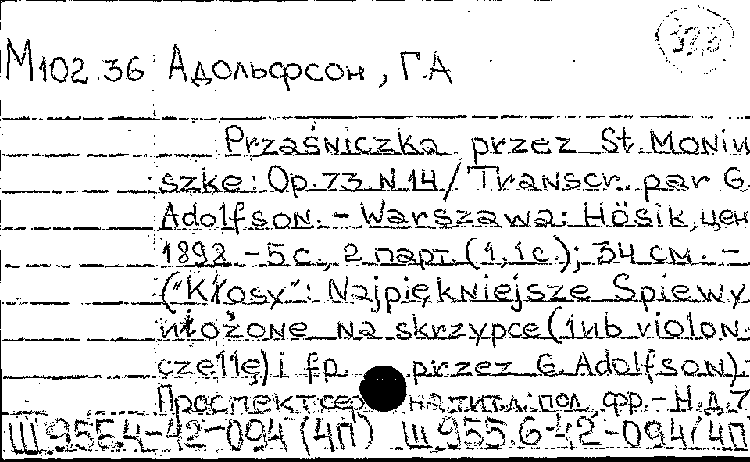 323
М102.36 Адольфсон, Г.А
Prząśniczka przez St. Moniu
szkę: Op. 73 N.14/ Transcr. par G.
Adolfson. – Warszawa: Hösik, цен
1892 – 5 с., 2 парт. (1,1с.); 34 см. –
("Kłosy": Najpiękniejsze Śpiewy
ułożone na skrzypce (lub violon-
czellę) i fp. przez G. Adolfson).
Проспект сер на титл: пол, фр. – Н.д. 7
Ш 956.4-42-094 (4П) Ш 955.6-42-094/4П